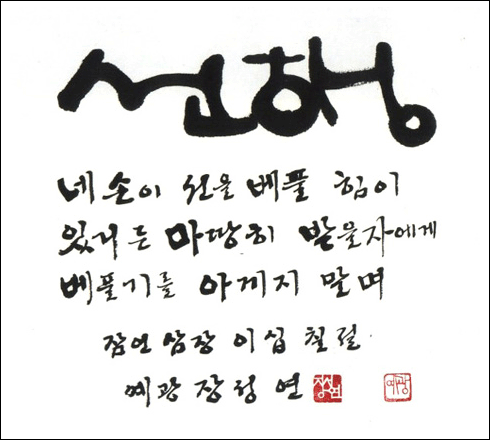 선행
네 손이 선을 베풀 힘이
있거든 마땅히 받을자에게
베풀기를 아끼지 말며
잠언 삼장 이십 칠절
예광 장성연 장성연 예광